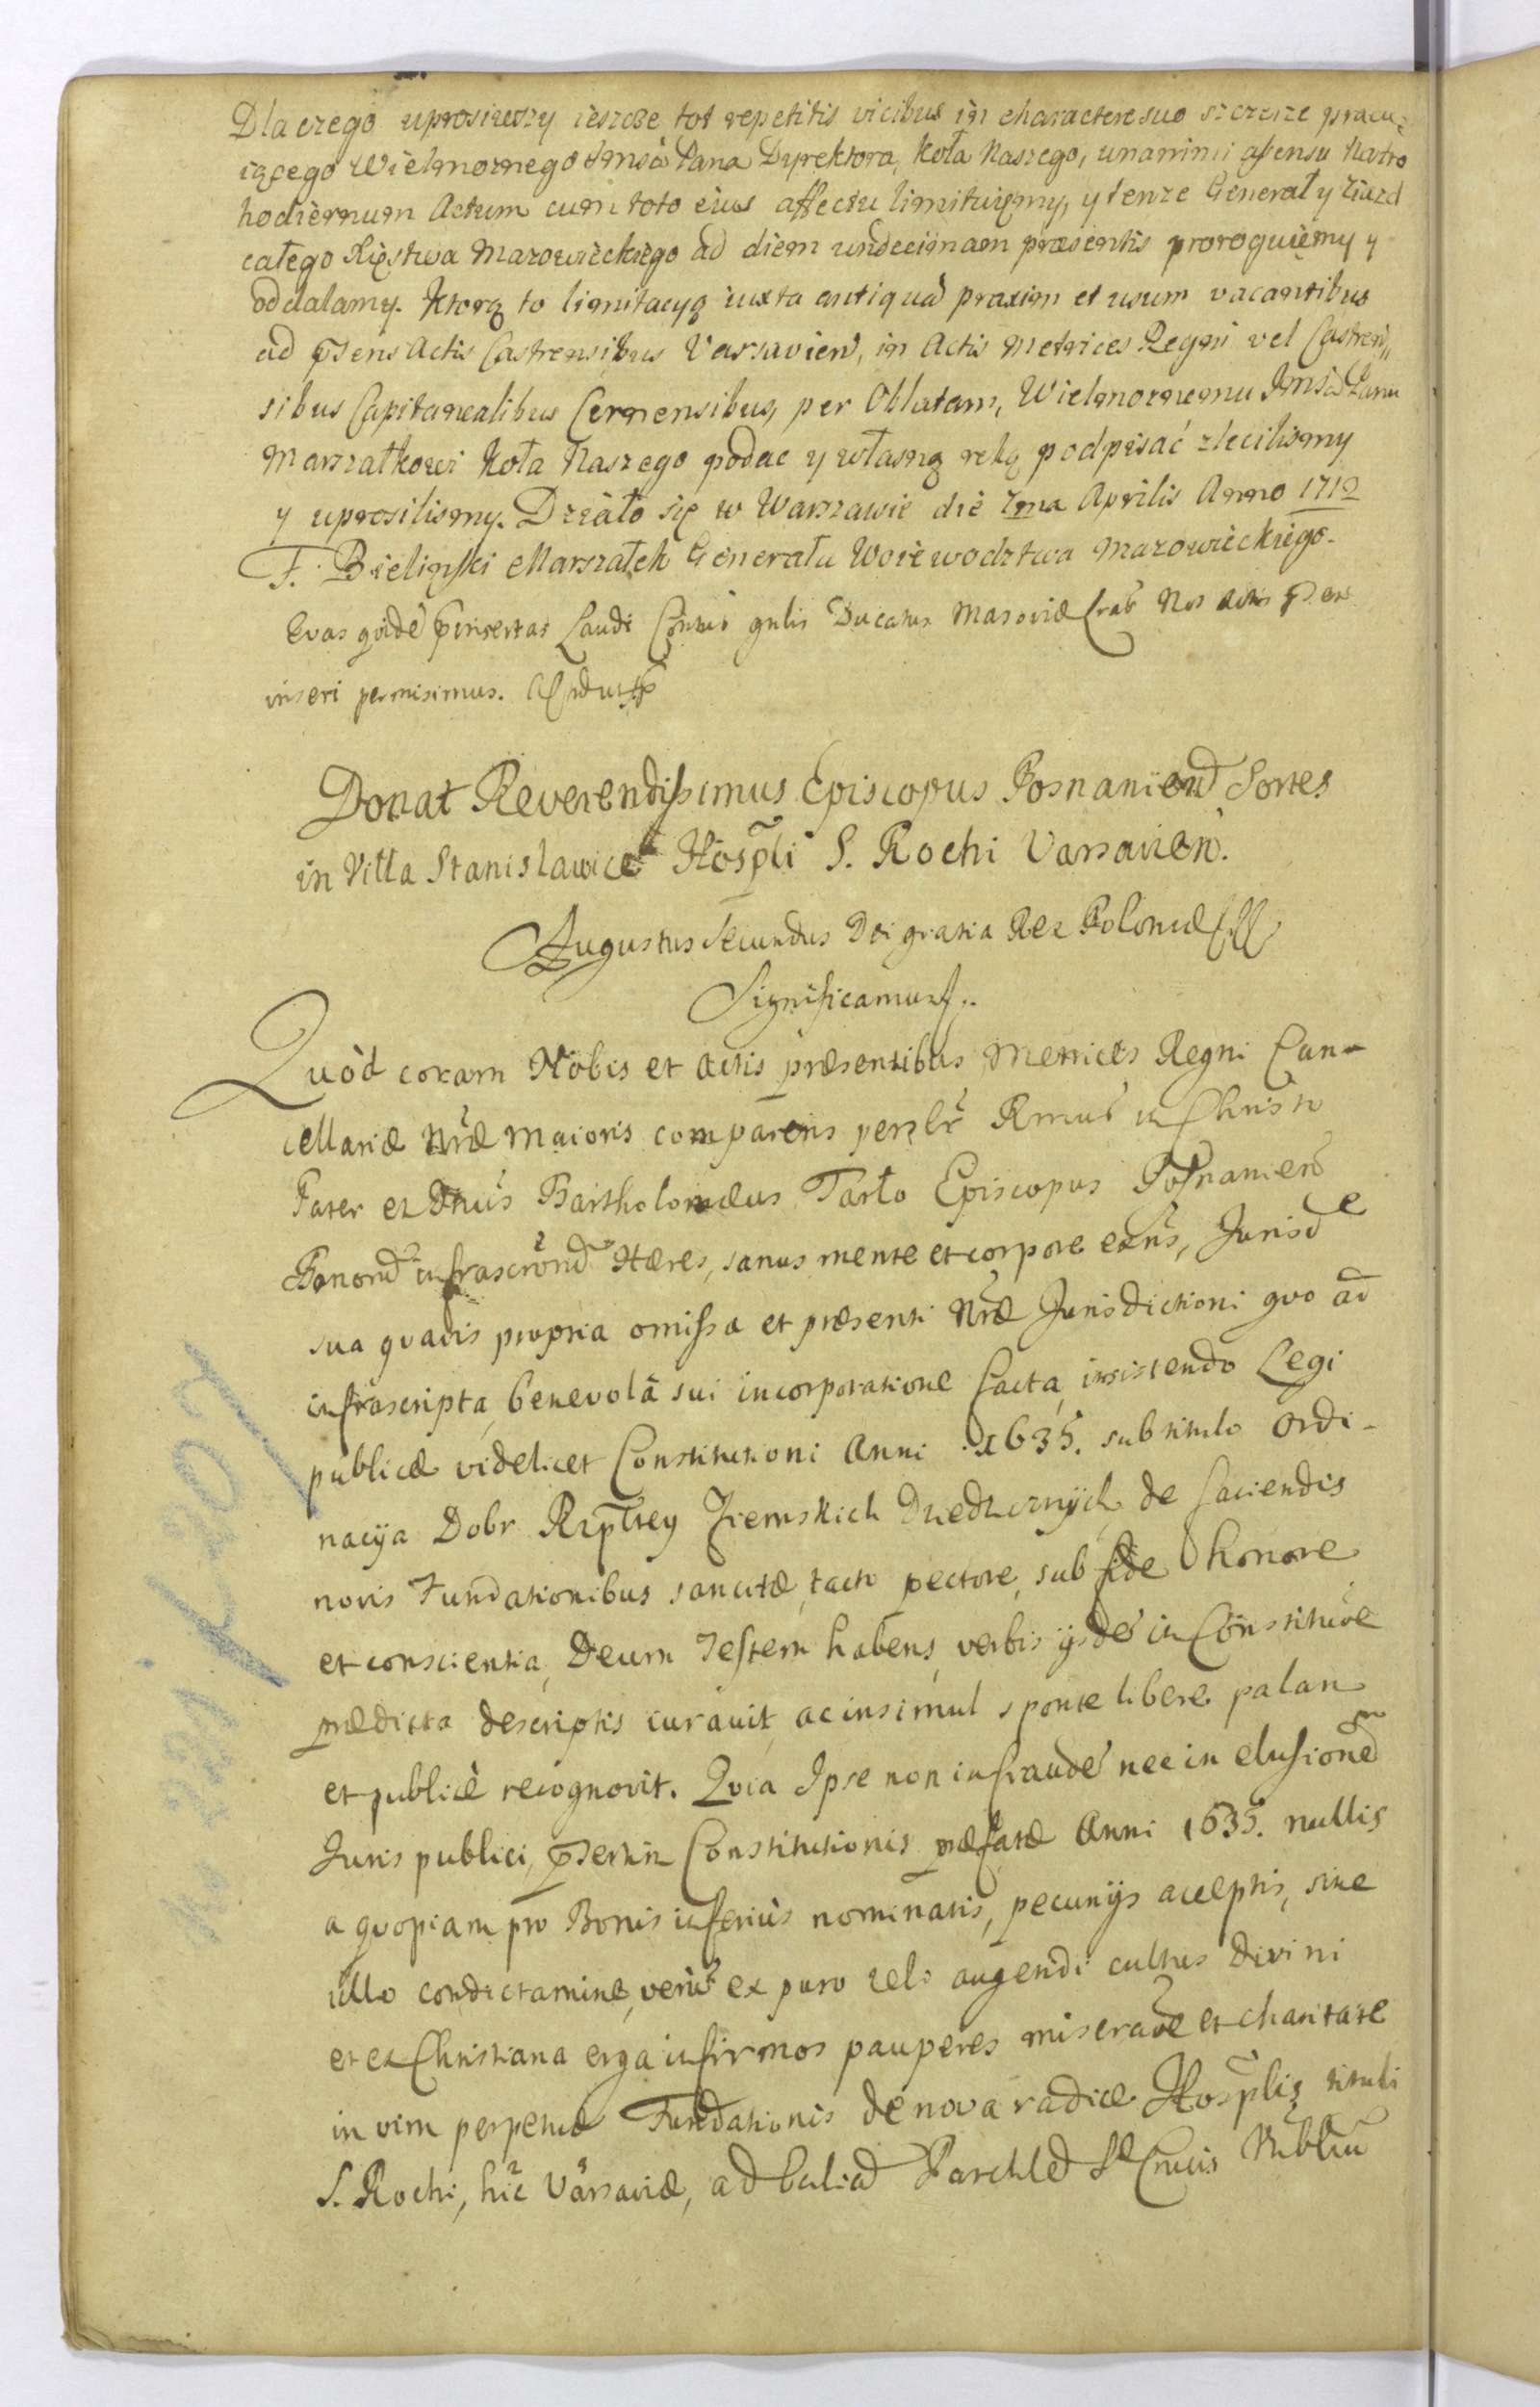 Dla czego uprosiwszy ieszcze tot repetitis vicibus in charactere suo szczerze pracu=
iącego Wielmożnego Jmsci Pana Dyrektora, Koła Naszego, unanimi assensu Nostro
hodiernum Actum cum toto eius affectu limituiemy, y tenze Generał y Ziazd
całego Xięstwa Mazowieckiego ad diem undecimam præsentis proroguiemy y
oddalamy. Ktorą to limitacyą iuxta antiquã praxim et usum vacantibus
ad p̃sens Actis Castrensibus Varsavien̄, in Actis Metrices Regni vel Castren„
sibus Capitanealibus Cernensibus, per Oblatam, Wielmoznemu Jmsci Panu
Marszałkowi Koła Naszego podac y własną ręką podpisać zlecilismy
y uprosilismy. Działo się w Warszawie die 7ma Aprilis Anno 1712
F. Bielinski Marszałek Generału Woiewodztwa Mazowieckiego.
Evas qvidẽ p̃insertas Laudi Conv̄s gn̄lis Ducatus Masoviæ Nos Actis p̃sent
inseri permisimus.
Donat Reverendissimus Episcopus Posnanien̄ Sortes
in Villa Stanislawice Hosp̃li S. Rochi Varsavien̄.
Augustus Secundus Dei gratia Rex Poloniæ
Significamus
Quòd coram Nobis et Actis præsentibus Metrices Regni Can-
cellariæ Nr̃æ Maioris comparens pers̃lr̃ Rm̃us in Christo
Pater et Dñus Bartholomæus Tarło Episcopus Posnanien̄
Bonor̃ infrascr̃or̃ Hæres, sanus mente et corpore ex̃ns, Jurisd̃e
sua qvavis propria omissa et præsenti Nr̃æ Jurisdictioni qvo ad
infrascripta, benevolâ sui incorporatione facta, insistendo Legi
publicæ videlicet Constitutioni Anni 1635. sub titulo Ordi-
nacya Dobr Rzpltey Ziemskich Dziedzicznych de faciendis
novis Fundationibus sancitæ, tacto pectore, sub fide honore
et conscientia, Deum Testem habens, verbis ijsdẽ in Constituõe
prædicta descriptis iuravit, ac insimul sponte libere palam
et publicè recognovit. Qvia Ipse non in fraudẽ nec in elusionem
Juris publici, p̃sertim Constitutionis præfatæ Anni 1635. nullis
a qvopiam pro Bonis inferiùs nominatis, pecunijs acceptis, sine
ullo condictamine, verũ ex puro zelo augendi cultus Divini
et ex Christiana erga infirmos pauperes miseraõe et charitate
in vim perpetuæ Fundationis de nova radice Hosp̃lis tituli
S. Rochi, hic Varsaviæ, ad S. Crucis